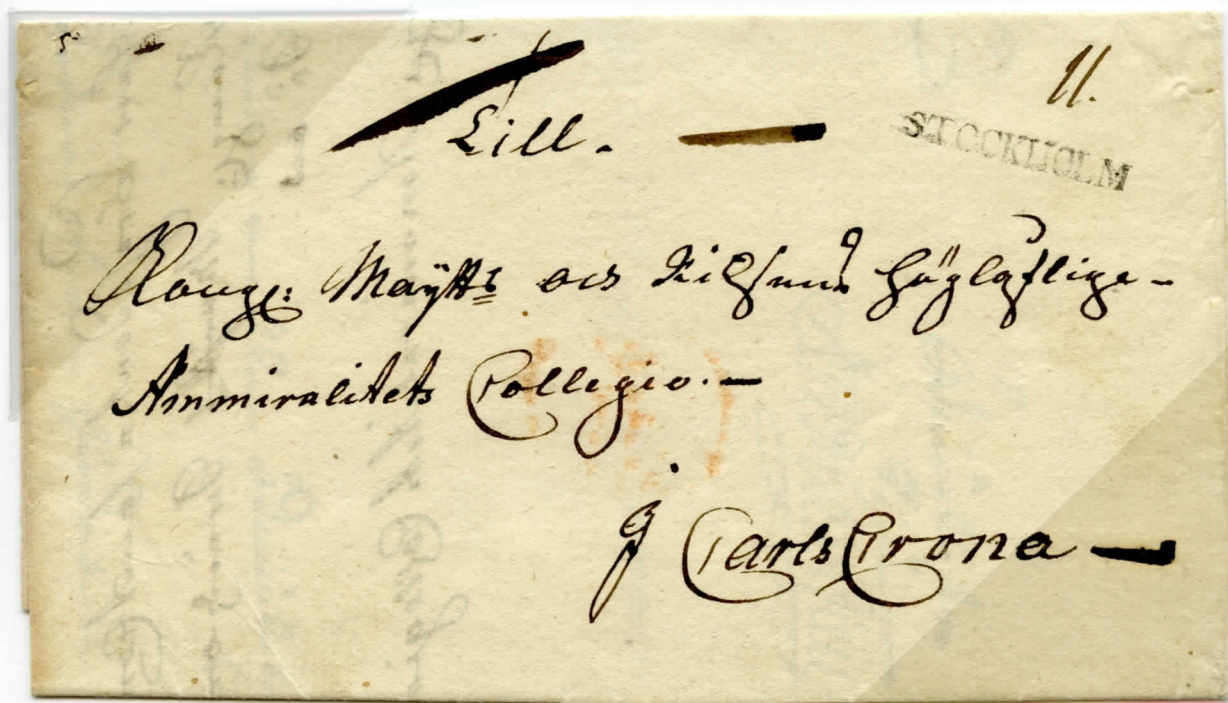 11.
Till. —
STOCKHOLM
Kongl: Maÿtts och Riksens Högloflige —
Ammiralitets Collegio. —
J CarlsCrona —